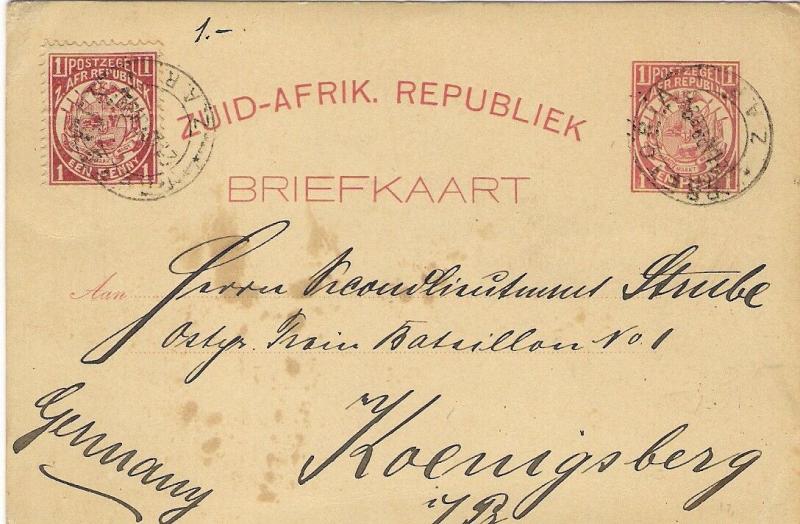 1.-
1 POSTZEGEL 1
Z. AFR. REPUBLIEK
EEN PENNY
1 1
ZUID-AFRIK. REPUBLIEK
BRIEFKAART
1 POSTZEGEL 1
Z. AFR. REPUBLIEK
Z.A.R.
PRETORIA
Z.A.R.
Aan Herrn Secondlieutenant Strube
Ostpr. Train Bataillon No. 1
Koenigsberg
i/Pr
Germany